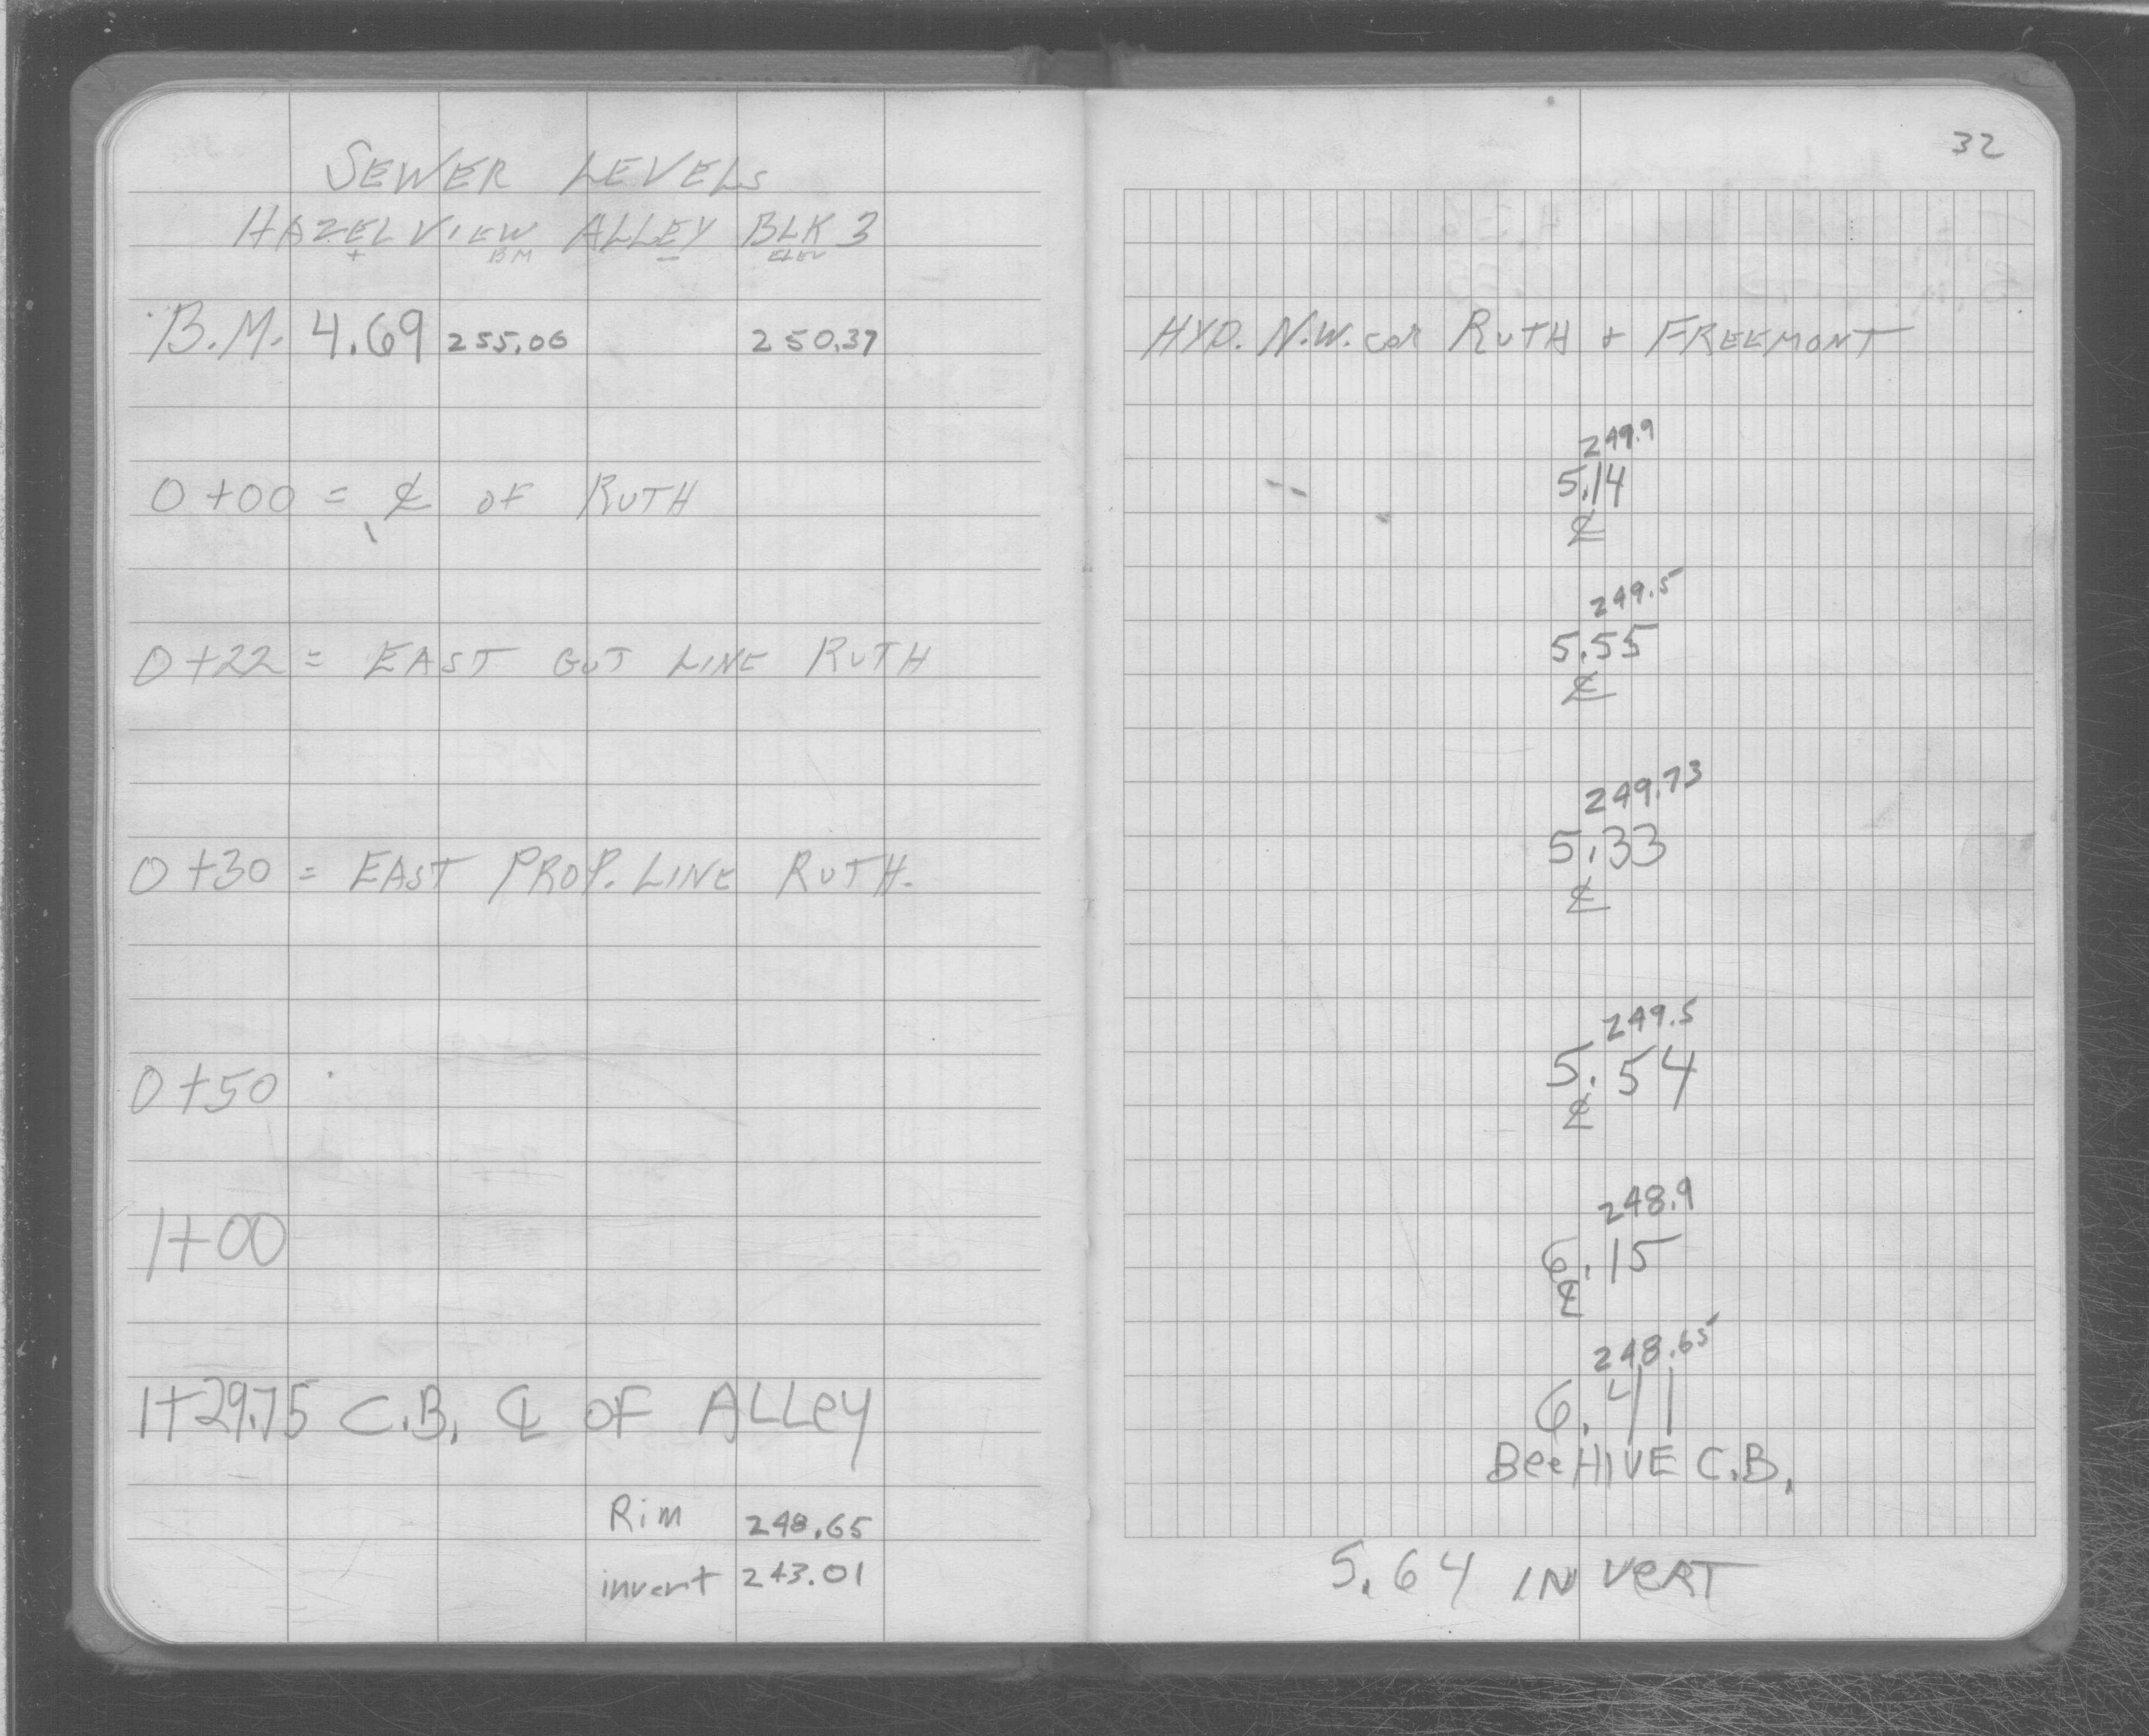 SEWER LEVELS
HAZEL VIEW ALLEY BLK 3
+ BM - ELEV
B.M. 4.69 255.06 250.37
0+00 = ℄ OF RUTH
0+22 = EAST GUT LINE RUTH
0+30 = EAST PROP. LINE RUTH.
0+50
1+00
1+29.75 C.B. ℄ OF ALLey
Rim 248.65
invert 243.01
32
HYD. N.W. COR RUTH + FREEMONT
249.9
5.14
℄
249.5
5.55
℄
249.73
5.33
℄
249.5
5.54
℄
248.9
6.15
℄
248.65
6.41
BeeHIVE C.B.
5.64 INVeRT